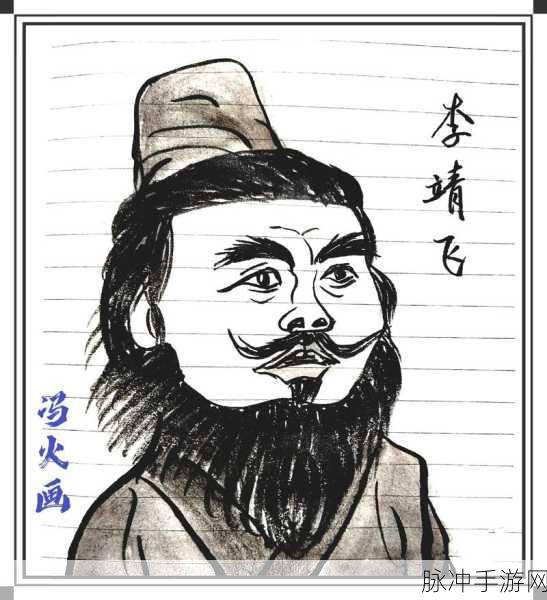 李靖飞
冯火画
脉冲手游网